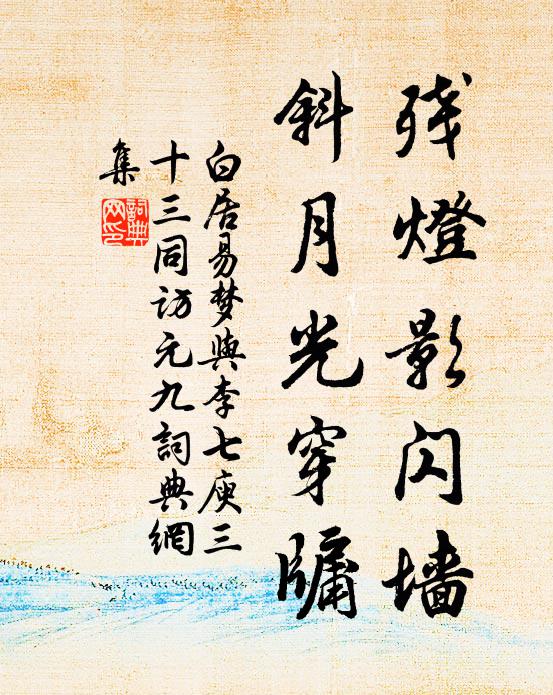 残燈影闪墙
斜月光穿牗
白居易梦與李七庾三
十三同访元九詞典網
集
詞典
网印